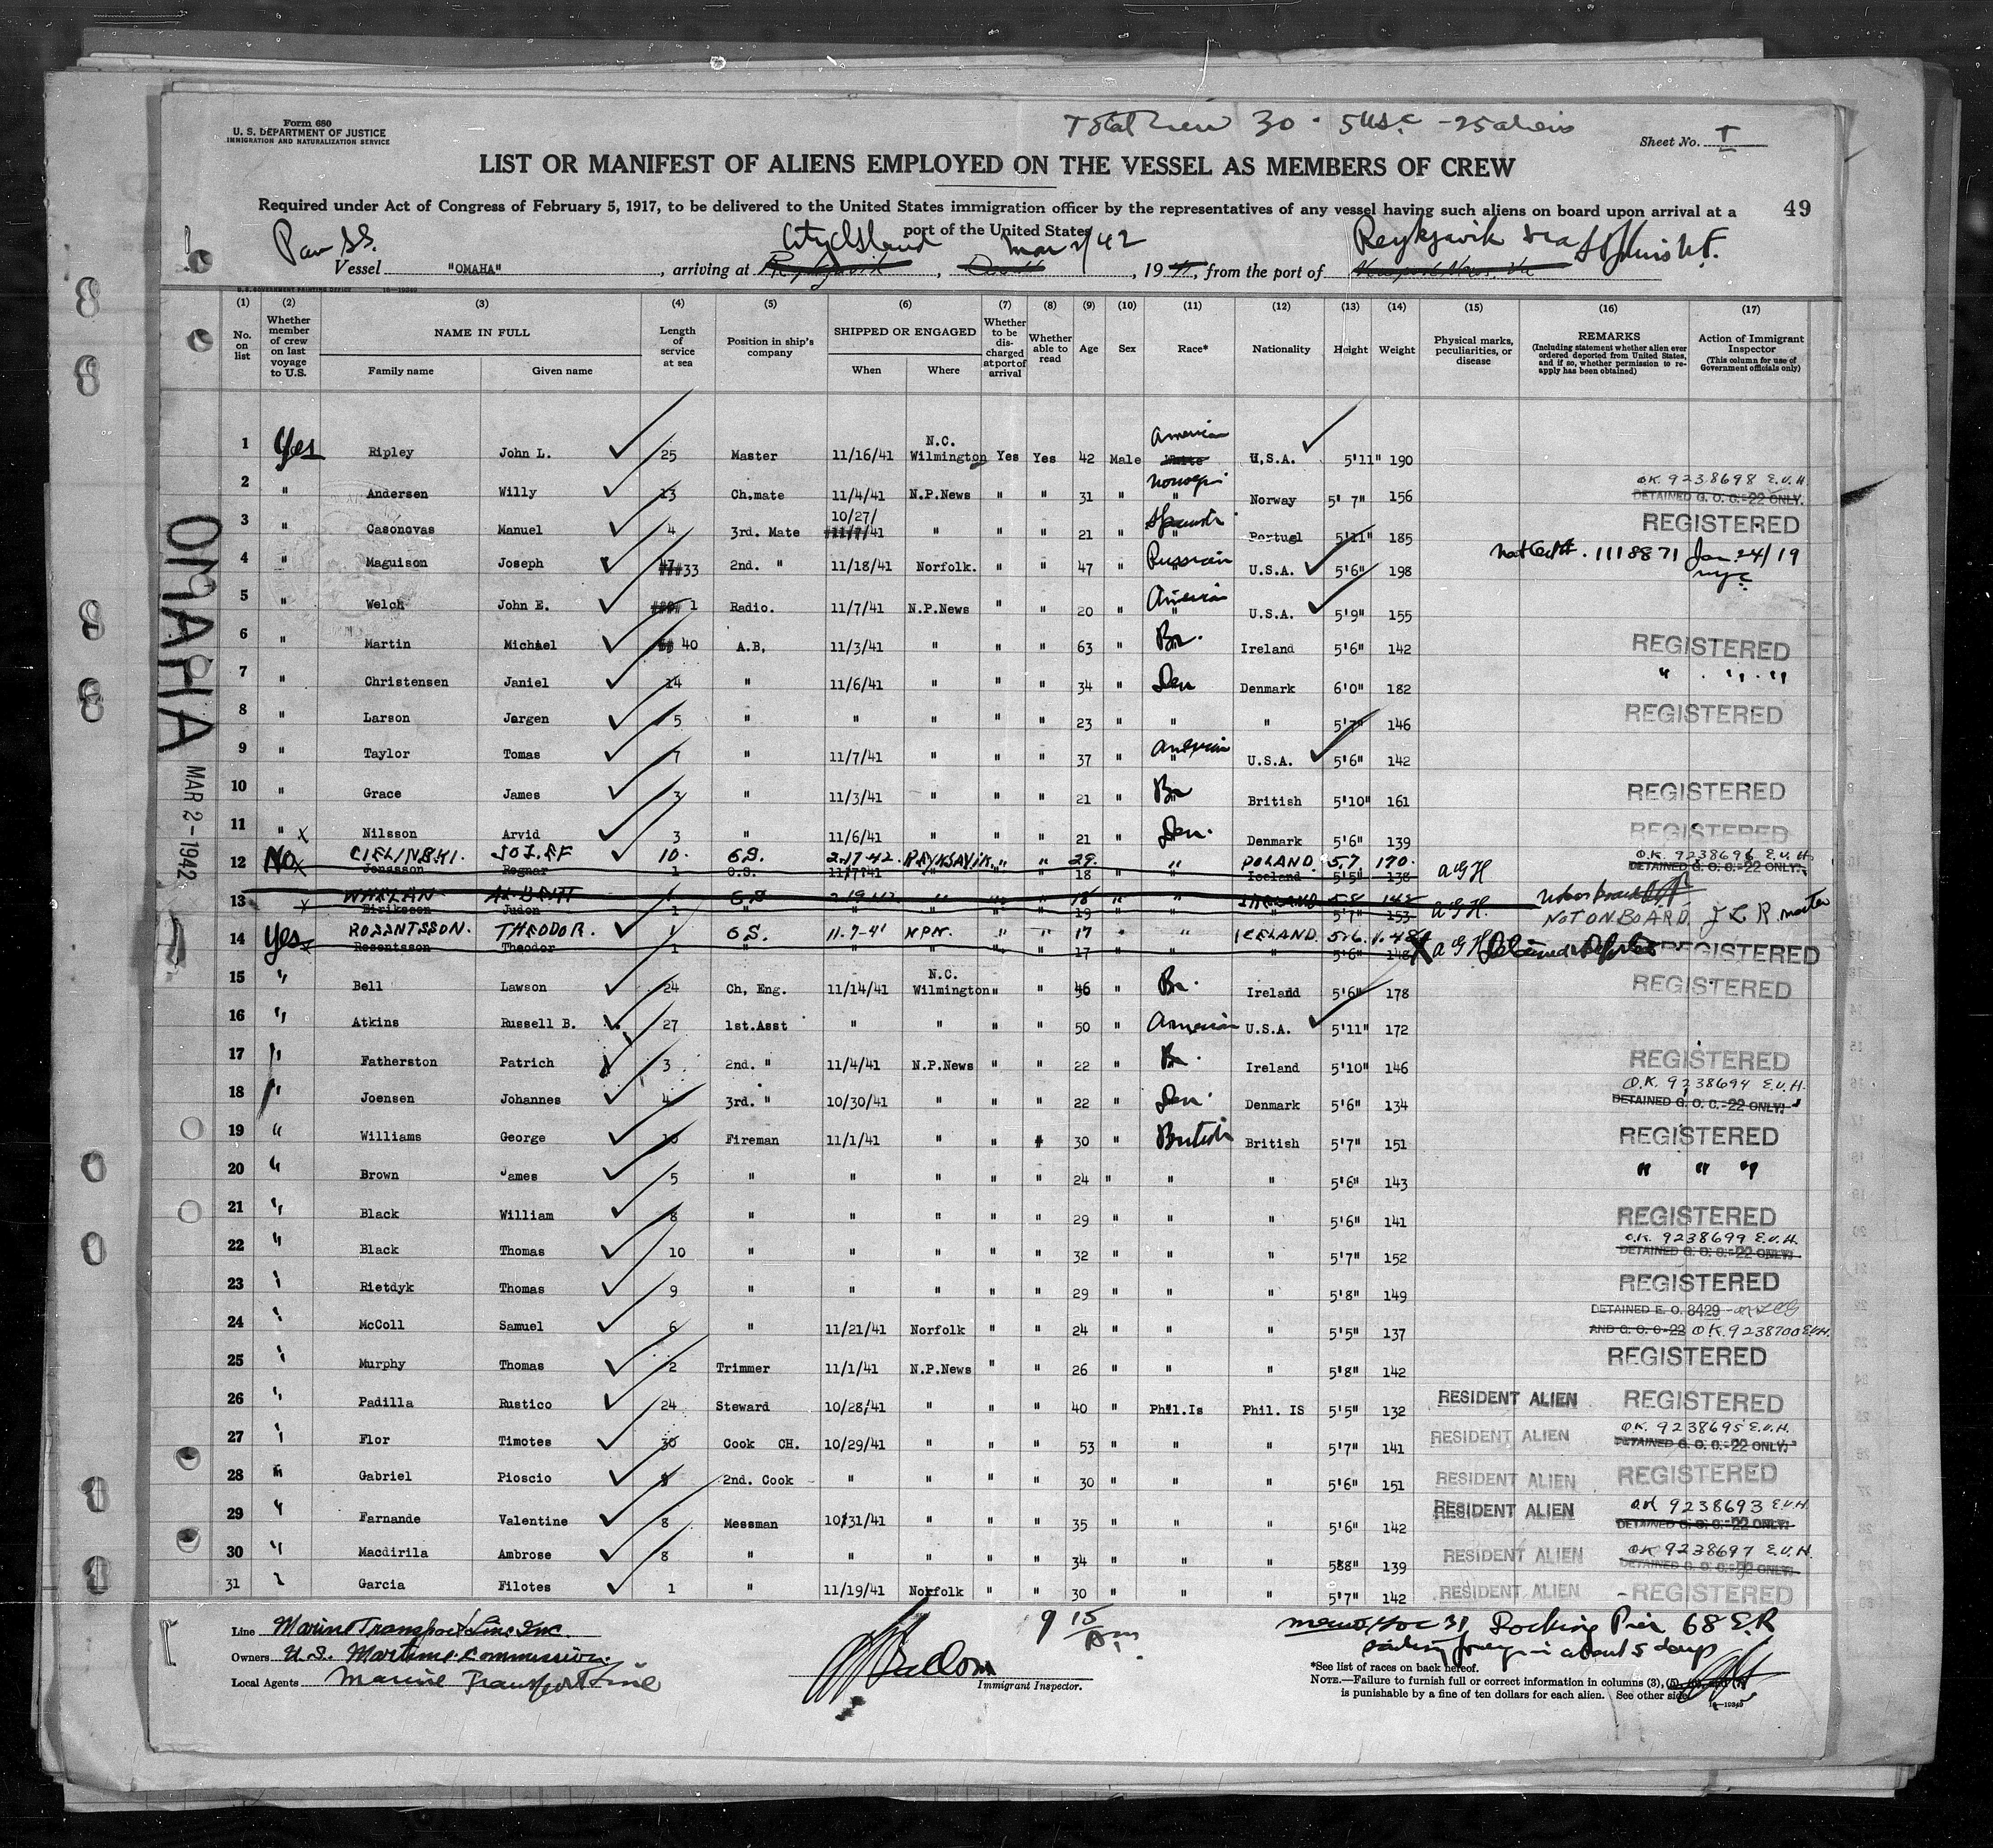 Form 680
U. S. DEPARTMENT OF JUSTICE
IMMIGRATION AND NATURALIZATION SERVICE
Total crew 30 - 5 USC - 25 aliens
Sheet No. I
LIST OR MANIFEST OF ALIENS EMPLOYED ON THE VESSEL AS MEMBERS OF CREW
Required under Act of Congress of February 5, 1917, to be delivered to the United States immigration officer by the representatives of any vessel having such aliens on board upon arrival at a
port of the United States
49
Pan SS. City Island Mar 2/42 Reykjavik via St Johns N.F.
Vessel "OMAHA", arriving at Reykjavik, , 19 41, from the port of Newport News Va
U. S. GOVERNMENT PRINTING OFFICE 16—19349
(1) (2) (3) (4) (5) (6) (7) (8) (9) (10) (11) (12) (13) (14) (15) (16) (17)
No. on list
Whether member of crew on last voyage to U.S.
NAME IN FULL
Family name Given name
Length of service at sea
Position in ship's company
SHIPPED OR ENGAGED
When Where
Whether to be discharged at port of arrival
Whether able to read
Age Sex Race* Nationality Height Weight
Physical marks, peculiarities, or disease
REMARKS
(Including statement whether alien ever ordered deported from United States, and if so, whether permission to reapply has been obtained)
Action of Immigrant Inspector
(This column for use of Government officials only)
1 Yes Ripley John L. 25 Master 11/16/41 N.C. Wilmington Yes Yes 42 Male American White U.S.A. 5'11" 190
2 " Andersen Willy 13 Ch.mate 11/4/41 N.P.News " " 31 " Norwegi " Norway 5' 7" 156 OK 9238698 E.V.H. DETAINED G. O. C.-22 ONLY.
3 " Casonovas Manuel 4 3rd. Mate 10/27/41 " " " 21 " Spanish " Portugl 5'11" 185 REGISTERED
4 " Maguison Joseph 33 2nd. " 11/18/41 Norfolk. " " 47 " Russian " U.S.A. 5'6" 198 Nat Cert #. 1118871 Jan 24/19 NYC
5 " Welch John E. 1 Radio. 11/7/41 N.P.News " " 20 " American " U.S.A. 5'9" 155
6 " Martin Michael 40 A.B. 11/3/41 " " " 63 " Br. Ireland 5'6" 142 REGISTERED
7 " Christensen Janiel 14 " 11/6/41 " " " 34 " Den Denmark 6'0" 182 " " "
8 " Larson Jørgen 5 " " " " " 23 " " " 5'7" 146 REGISTERED
9 " Taylor Tomas 7 " 11/7/41 " " " 37 " American " U.S.A. 5'6" 142
10 " Grace James 3 " 11/3/41 " " " 21 " Br " British 5'10" 161 REGISTERED
11 " x Nilsson Arvid 3 " 11/6/41 " " " 21 " Den. Denmark 5'6" 139 REGISTERED
12 No x CIELINSKI. JOZ.EF 10. O S. 2-17-42. REYKSAVIK. " " 29. " POLAND. 5.7 170. OK. 9238696 E.V.H.
Jonasson Ragnar 1 O.S. 11/7/41 " " " 18 " " Iceland 5'5" 138 A G H DETAINED G. O. C.-22 ONLY.
13 WHELAN ALBERT 1 O S 2-19-42. " " " 18 " " IRELAND 5.8 145
x Eiriksson Judon 1 " " " " " 19 " " " 5'7" 153 A G H. NOT ON BOARD J L R master
14 Yes x ROSENTSSON. THEODOR. 1 O S. 11-7-41 NPN. " " 17 " " ICELAND. 5.6. 148
Rosentsson Theodor 1 " " " " " 17 " " " 5'6" 148 A G H REGISTERED
15 " Bell Lawson 24 Ch, Eng. 11/14/41 N.C. Wilmington " " 46 " Br. Ireland 5'6" 178 REGISTERED
16 " Atkins Russell B. 27 1st.Asst " " " " 50 " American U.S.A. 5'11" 172
17 " Fatherston Patrich 3 2nd. " 11/4/41 N.P.News " " 22 " Br. Ireland 5'10" 146 REGISTERED
18 " Joensen Johannes 4 3rd. " 10/30/41 " " " 22 " Den. Denmark 5'6" 134 O.K. 9238694 E.V.H. DETAINED G. O. C.-22 ONLY.
19 " Williams George 10 Fireman 11/1/41 " " " 30 " British British 5'7" 151 REGISTERED
20 " Brown James 5 " " " " " 24 " " " 5'6" 143 " " "
21 " Black William 8 " " " " " 29 " " " 5'6" 141 REGISTERED
22 " Black Thomas 10 " " " " " 32 " " " 5'7" 152 O.K. 9238699 E.V.H. DETAINED G. O. C.-22 ONLY.
23 " Rietdyk Thomas 9 " " " " " 29 " " " 5'8" 149 REGISTERED
24 " McColl Samuel 6 " 11/21/41 Norfolk " " 24 " " " 5'5" 137 DETAINED E. O. 8429 AND G. O. C.-22 O.K. 9238700 E.V.H.
25 " Murphy Thomas 2 Trimmer 11/1/41 N.P.News " " 26 " " " 5'8" 142 REGISTERED
26 " Padilla Rustico 24 Steward 10/28/41 " " " 40 " Phil.Is Phil. IS 5'5" 132 RESIDENT ALIEN REGISTERED
27 " Flor Timotes 30 Cook CH. 10/29/41 " " " 53 " " " 5'7" 141 RESIDENT ALIEN O.K. 9238695 E.V.H. DETAINED G. O. C.-22 ONLY.
28 " Gabriel Pioscio 8 2nd. Cook " " " " 30 " " " 5'6" 151 RESIDENT ALIEN REGISTERED
29 " Farnande Valentine 8 Messman 10/31/41 " " " 35 " " " 5'6" 142 RESIDENT ALIEN OK 9238693 E.V.H. DETAINED G. O. C.-22 ONLY.
30 " Macdirila Ambrose 8 " " " " " 34 " " " 588" 139 RESIDENT ALIEN OK 9238697 E.V.H. DETAINED G. O. C.-22 ONLY.
31 " Garcia Filotes 1 " 11/19/41 Norfolk " " 30 " " " 5'7" 142 RESIDENT ALIEN REGISTERED
OMAHA
MAR 2-1942
Line Marine Transport Line Inc.
Owners U.S. Maritime Commission.
Local Agents Marine Transport Line
Immigrant Inspector.
9 15 Am
Docking Pier 68 E.R
sailing foreign in about 5 days
*See list of races on back hereof.
NOTE.—Failure to furnish full or correct information in columns (3), (5),
is punishable by a fine of ten dollars for each alien. See other side.
16—19349